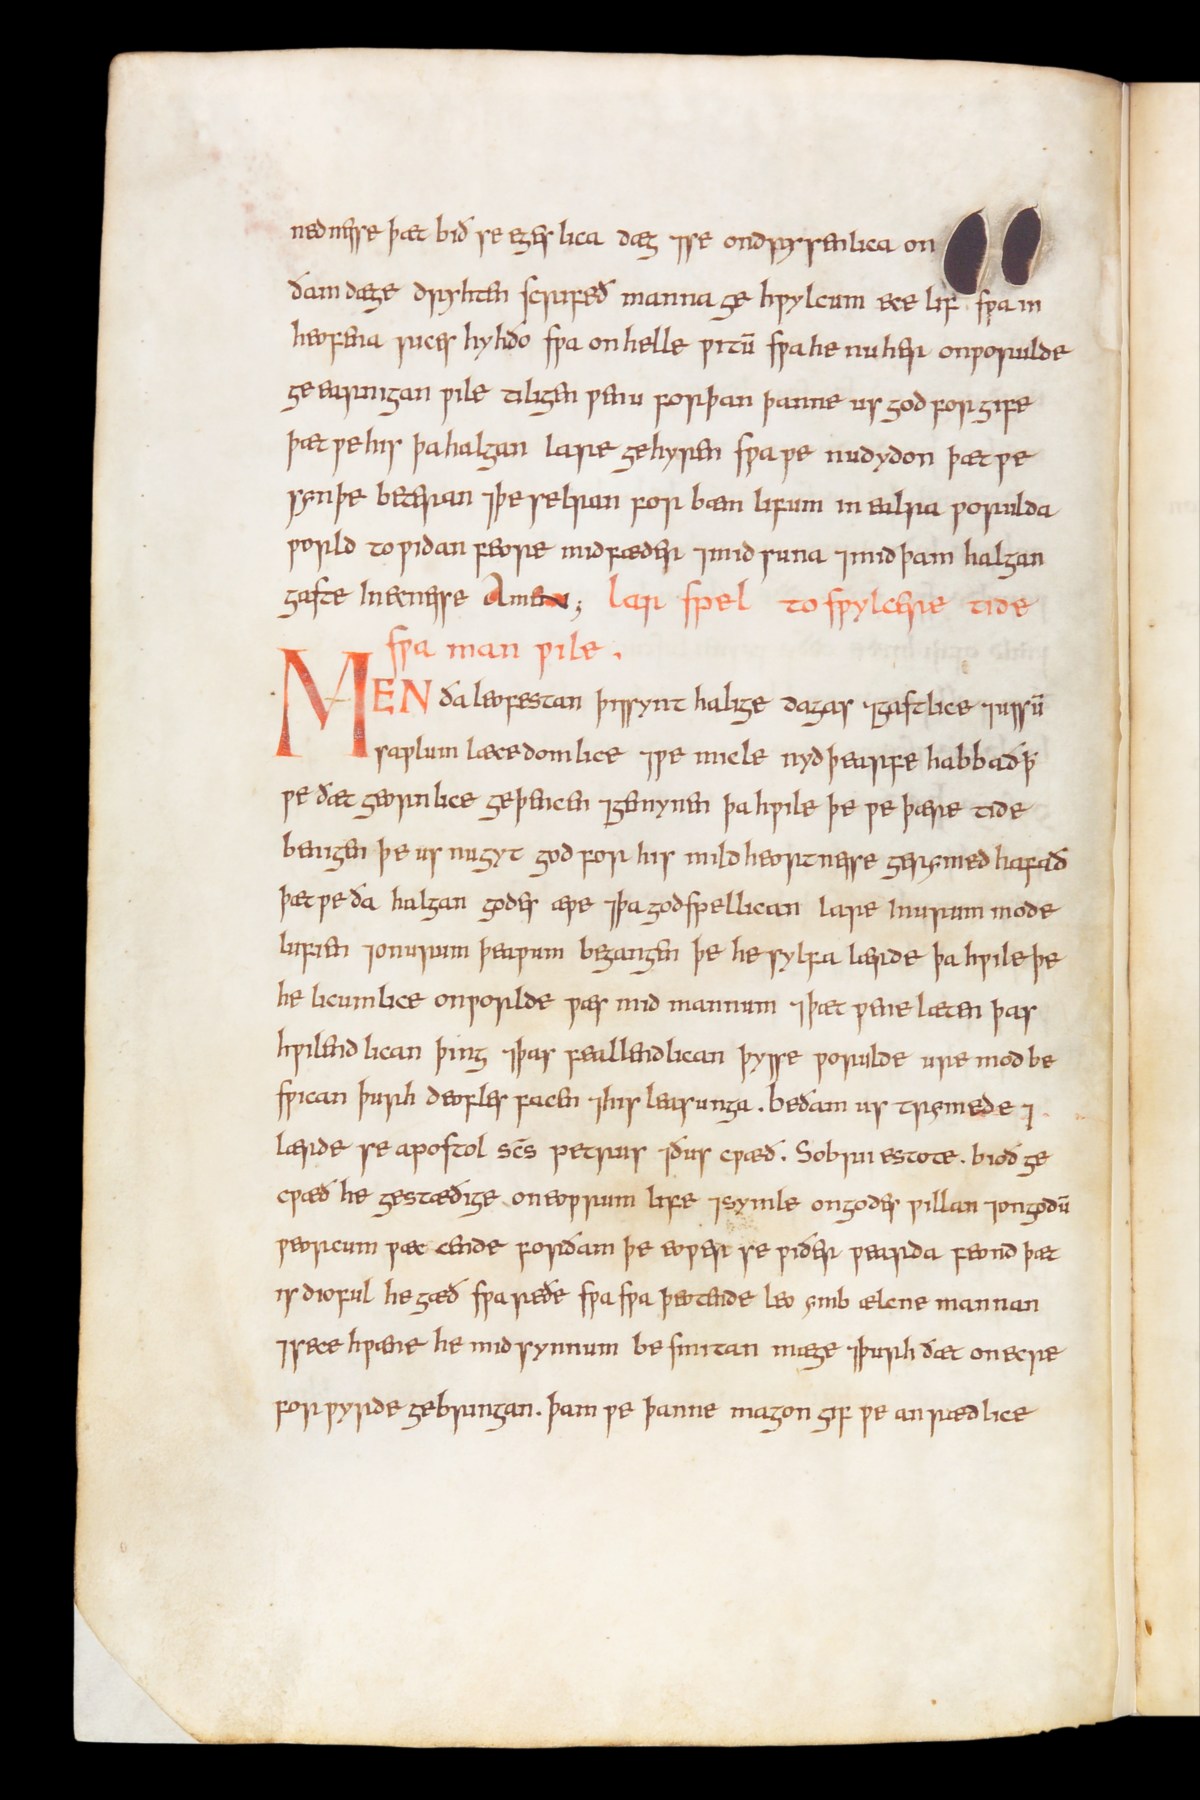 nednesse þæt bið se egeslica dæg ⁊se ondrysenlica on
ðam dæge dryhten scrifeð manna gehƿylcum ece lif sƿa in
heofena rices hyhðo sƿa on helle ƿitū sƿa he nu her on ƿorulde
geearnigan ƿile tiligen ƿe nu forþan þanne us god forgife
þæt ƿe his þa halgan lare gehyren sƿa ƿe nu dydon þæt ƿe
syn þe beteran ⁊þe selran for bæm lifum in ealra ƿorulda
ƿorld to ƿidan feore mid fæder ⁊mid suna ⁊mid þam halgan
gaste in ecnesse Amen; lar spel to sƿylcere tide
sƿa man ƿile.
MEN ða leofestan þis synt halige dagas ⁊gastlice ⁊ussū
saƿlum læcedomlice ⁊ƿe micle nydþearfe habbað ꝥ
ƿe ðæt geornlice geþencen ⁊gemynen þa hƿile þe ƿe þære tide
benigen þe us nu gyt god for his mildheortnesse gerymed hafað
þæt ƿe ða halgan godes æƿe ⁊þa godspellican lare in urum mode
lufien ⁊on urum þeaƿum begangen þe he sylfa lærde þa hƿile þe
he licumlice on ƿorulde ƿæs mid mannum ⁊þæt ƿe ne læten þas
hƿilendlican þing ⁊þas feallendlican þysse ƿorulde ure mod be
sƿican þurh deofles facen ⁊his leasunga. be ðam us trymede ⁊
lærde se apostol scs̄ petrus ⁊ðus cƿæð. Sobrii estote. bioð ge
cƿæð he gestæðige on eoƿrum life ⁊symle on godes ƿillan ⁊on godū
ƿeorcum ƿæccende forðam þe eoƿer se ƿiðerƿearda feond þæt
is dioful he gæð sƿa reðe sƿa sƿa þeotende leo ymb ælcne mannan
⁊sece hƿæne he mid synnum besmitan mæge ⁊þurh ðæt on ecre
forƿyrde gebringan. þam ƿe þanne magon gif ƿe anrædlice